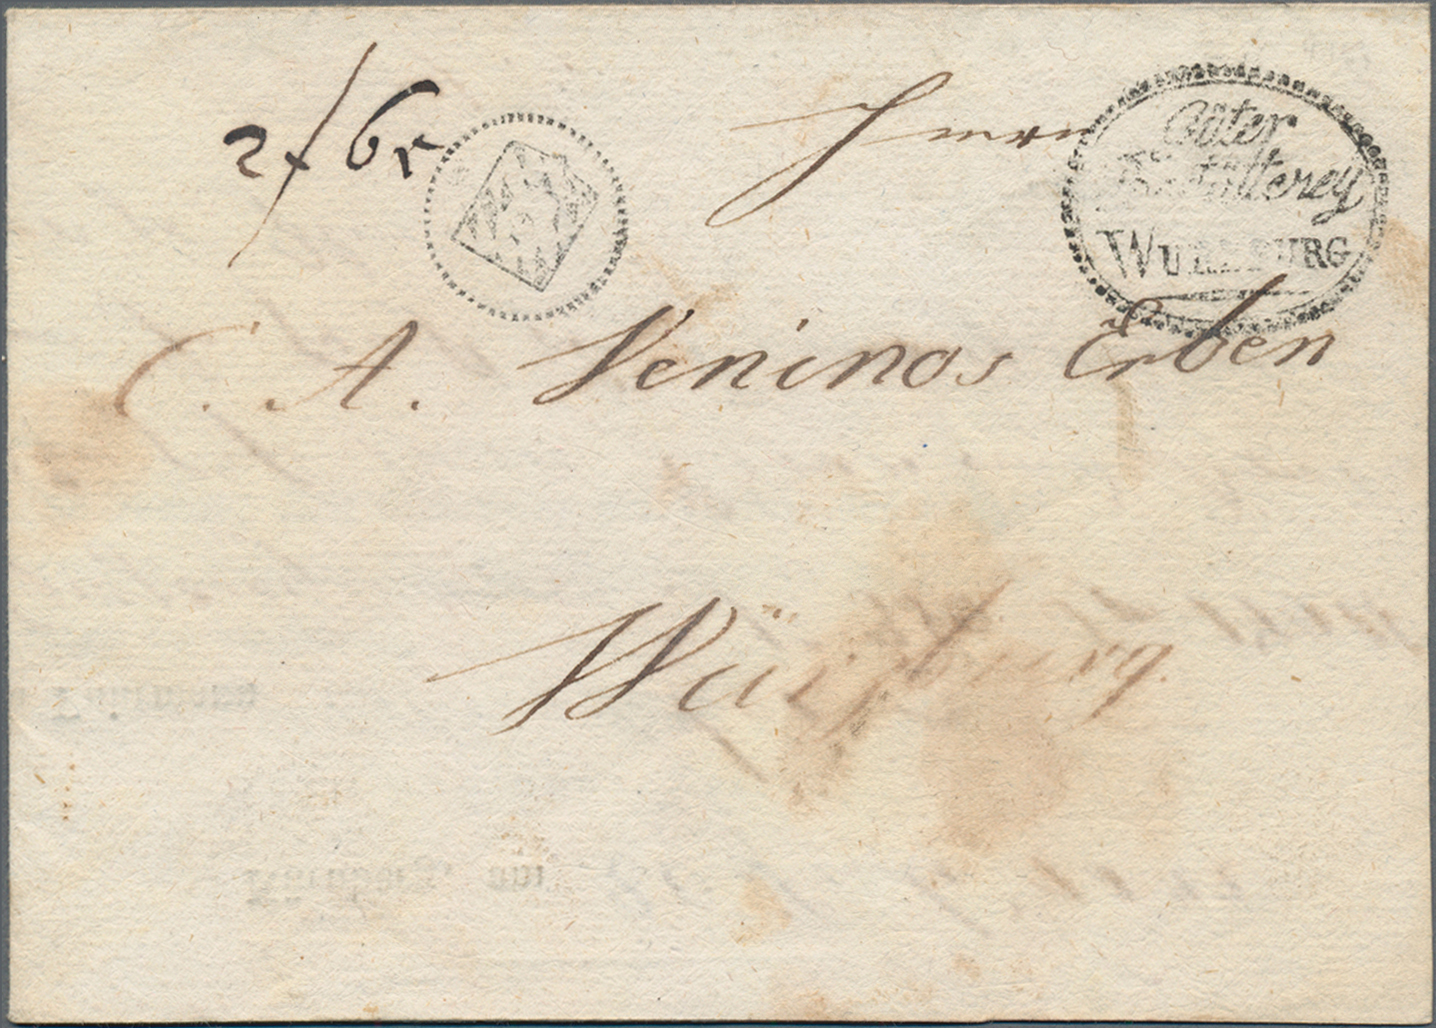 2/6r
Herrn
Güter
Bestätterey
WURZBURG
C. A. Veninos Erben
Würzburg.